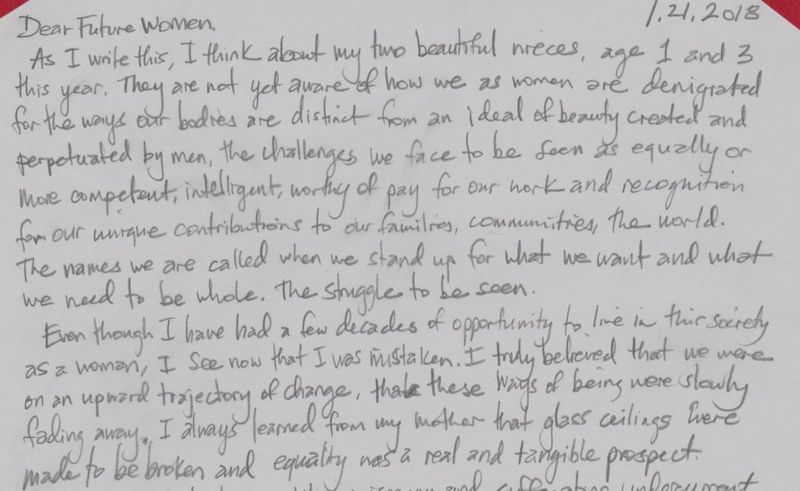 1.21.2018
Dear Future Women,
As I write this, I think about my two beautiful nieces, age 1 and 3
this year. They are not yet aware of how we as women are denigrated
for the ways our bodies are distinct from an ideal of beauty created and
perpetuated by men, the challenges we face to be seen as equally or
more competent, intelligent, worthy of pay for our work and recognition
for our unique contributions to our families, communities, the world.
The names we are called when we stand up for what we want and what
we need to be whole. The struggle to be seen.
Even though I have had a few decades of opportunity to live in this society
as a woman, I see now that I was mistaken. I truly believed that we were
on an upward trajectory of change, that these ways of being were slowly
fading away. I always learned from my mother that glass ceilings were
made to be broken and equality was a real and tangible prospect.
and